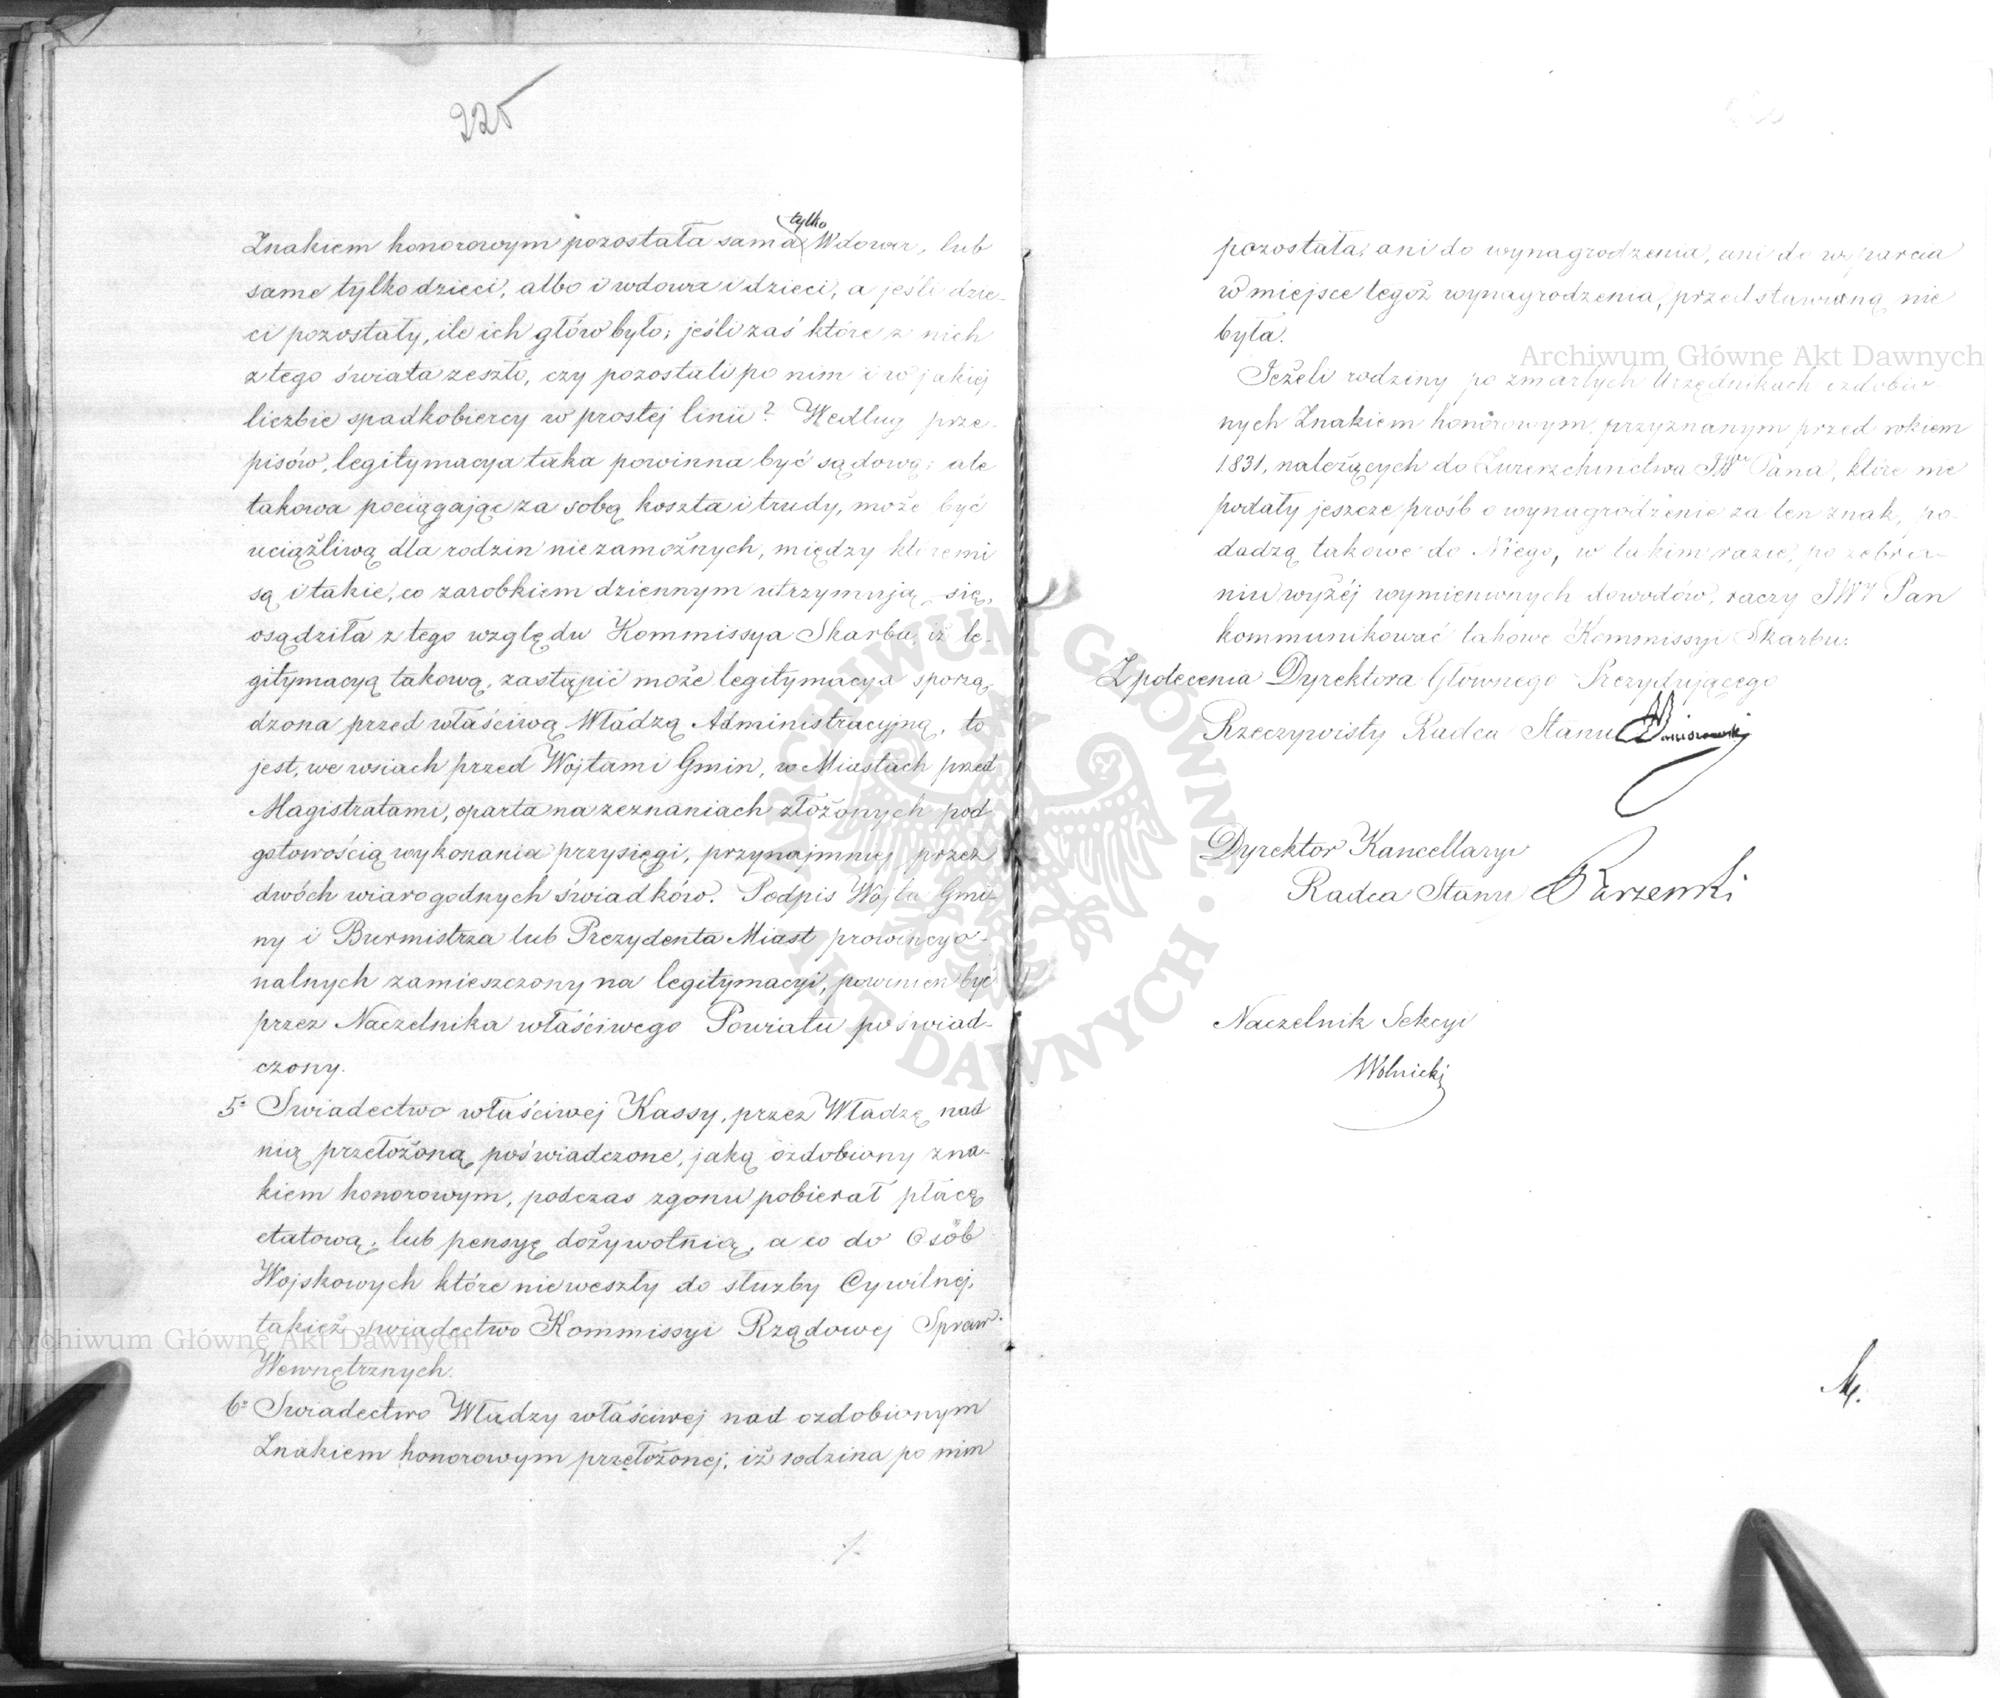 225
Znakiem honorowym pozostała sama tylko Wdowa, lub
same tylko dzieci, albo i wdowa i dzieci, a jeśli dzie-
ci pozostały, ile ich głów było; jeśli zaś które z nich
z tego świata zeszło, czy pozostali po nim i w jakiej
liczbie spadkobiercy w prostej linii? Według prze-
pisów, legitymacya taka powinna być sądową; ale
takowa pociągając za sobą koszta i trudy, może być
uciążliwą dla rodzin niezamożnych, między któremi
są i takie, co zarobkiem dziennym utrzymują się,
osądziła z tego względu Kommissya Skarbu, iż le-
gitymacyą takową, zastąpić może legitymacya sporzą-
dzona przed właściwą Władzą Administracyjną, to
jest, we wsiach przed Wójtami Gmin, w Miastach przed
Magistratami, oparta na zeznaniach złożonych pod
gotowością wykonania przysięgi, przynajmniej przez
dwóch wiarogodnych świadków. Podpis Wójta Gmi-
ny i Burmistrza lub Prezydenta Miast prowincyo-
nalnych zamieszczony na legitymacyi, powinien być
przez Naczelnika właściwego Powiatu poświad-
czony.
5= Swiadectwo właściwej Kassy, przez Władzę nad
nią przełożoną poświadczone, jaką ozdobiony zna-
kiem honorowym, podczas zgonu pobierał płacę
etatową, lub pensyę dożywotnią, a co do Osób
Wojskowych które nieweszły do służby Cywilnej,
takież swiadectwo Kommissyi Rządowej Spraw
Wewnętrznych.
6= Swiadectwo Władzy właściwej nad ozdobionym
Znakiem honorowym przełożonej, iż rodzina po nim
pozostała, ani do wynagrodzenia, ani do wsparcia
w miejsce tegoż wynagrodzenia, przedstawioną nie
była.
Jeżeli rodziny po zmarłych Urzędnikach ozdobio-
nych Znakiem honorowym, przyznanym przed rokiem
1831, należących do Zwierzchnictwa JWgo Pana, które nie
podały jeszcze próśb o wynagrodzenie za ten znak, po-
dadzą takowe do Niego, w takim razie, po zebra-
niu wyżej wymienionych dowodów, raczy JWy Pan
kommunikować takowe Kommissyi Skarbu.
Z polecenia Dyrektora Głównego Prezydującego
Rzeczywisty Radca Stanu
Dyrektor Kancellaryi
Radca Stanu
Naczelnik Sekcyi
Wolnicki
Archiwum Główne Akt Dawnych
Archiwum Główne Akt Dawnych
ARCHIWUM GŁÓWNE AKT DAWNYCH